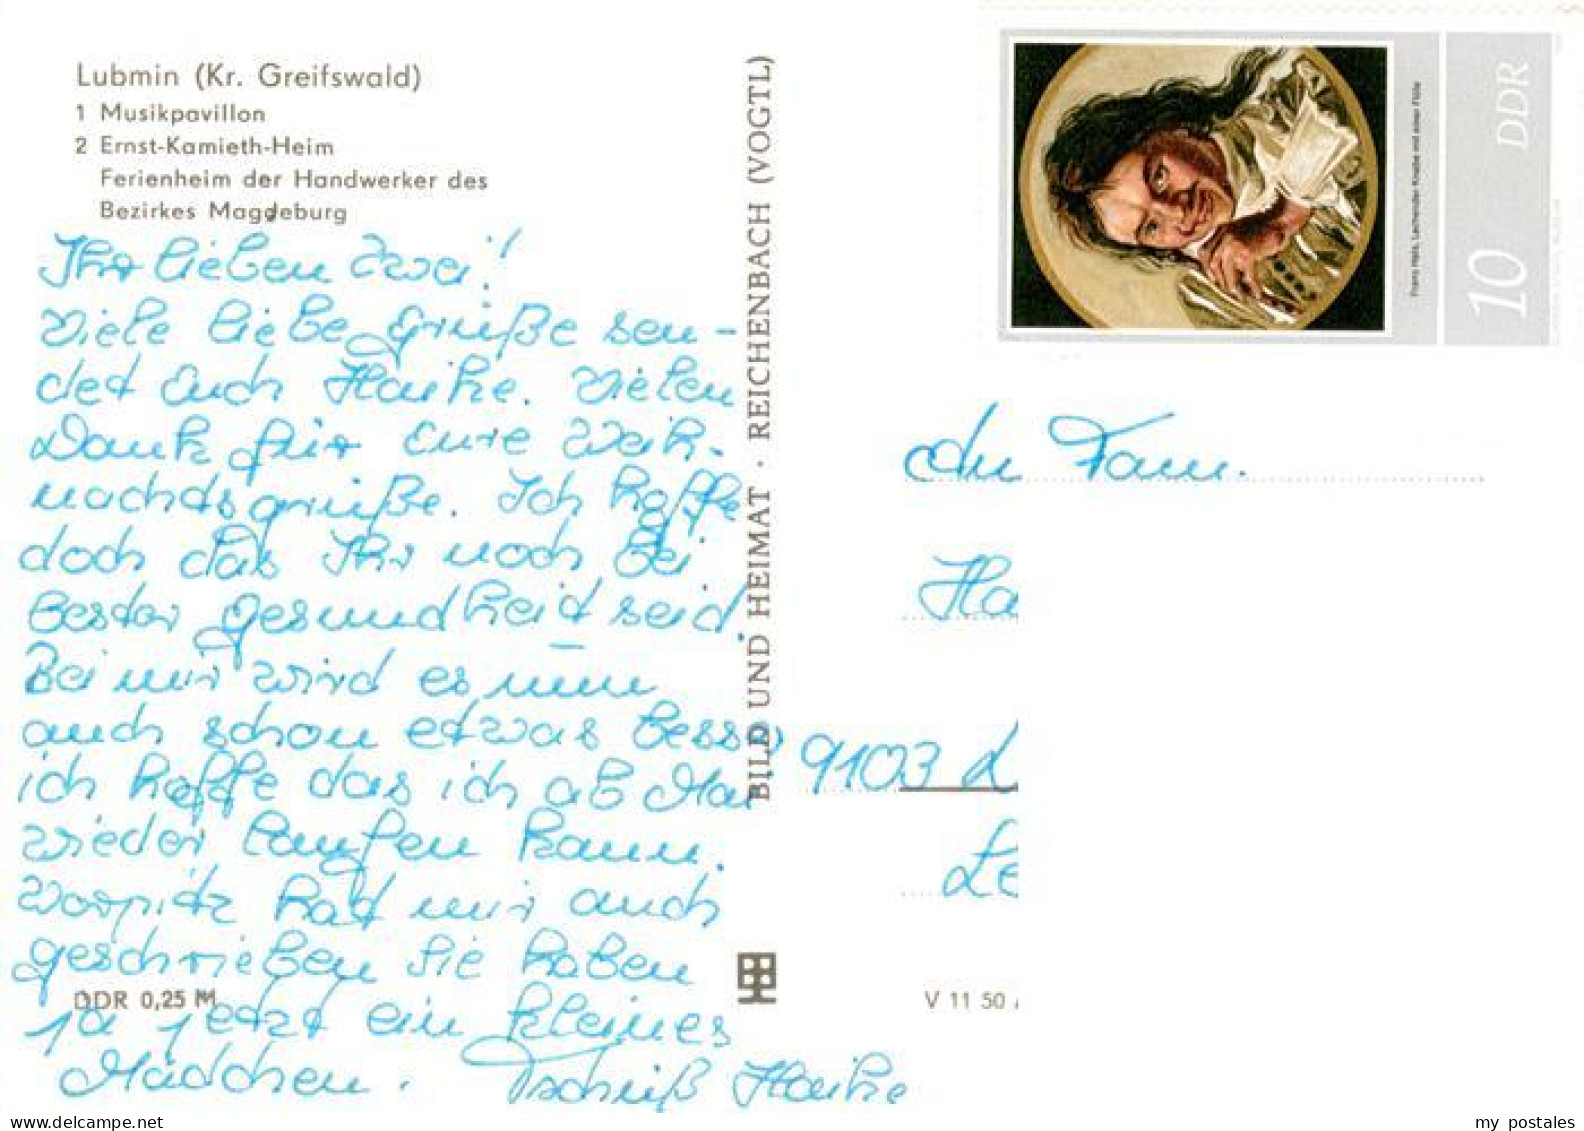 Lubmin (Kr. Greifswald)
1 Musikpavillon
2 Ernst-Kamieth-Heim
Ferienheim der Handwerker des
Bezirkes Magdeburg
Ihr lieben Zwei!
Viele liebe Grüße sen-
det Euch Haike. Vielen
Dank für Eure Weih-
nachdsgrüße. Ich hoffe
doch das Ihr noch bei
bester gesundheid seid.
Bei mir wird es nun
auch schon etwas besser
ich hoffe das ich ab Mai
wieder laufen kann.
hat mir auch
geschrieben Sie haben
ja jetzt ein kleines
Mädchen. Tschüß Haike
DDR 0,25 M
BILD UND HEIMAT · REICHENBACH (VOGTL)
Frans Hals, Lachender Knabe mit einer Flöte
10 DDR
An Fam.
Ha
9103 L
Le
V 11 50
my postales